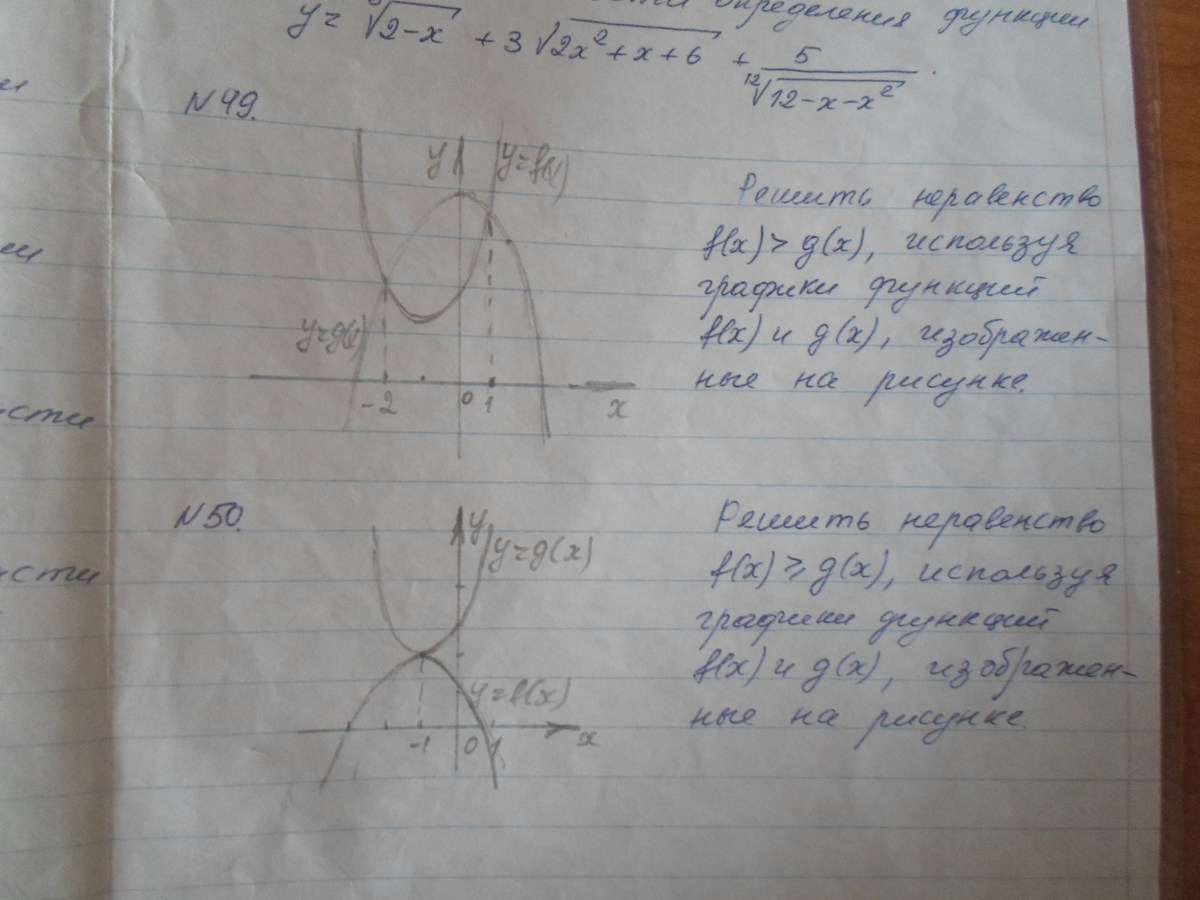 определения функции
y = √2-x + 3√2x²+x+6 + 5/¹²√12-x-x².
N49.
y y=f(x)
y=g(x)
-2 0 1 x
Решить неравенство
f(x) > g(x), используя
графики функций
f(x) и g(x), изображен-
ные на рисунке.
N50.
y
y=g(x)
y=f(x)
-1 0 1 x
Решить неравенство
f(x) ⩾ g(x), используя
графики функций
f(x) и g(x), изображен-
ные на рисунке.
сти
сти